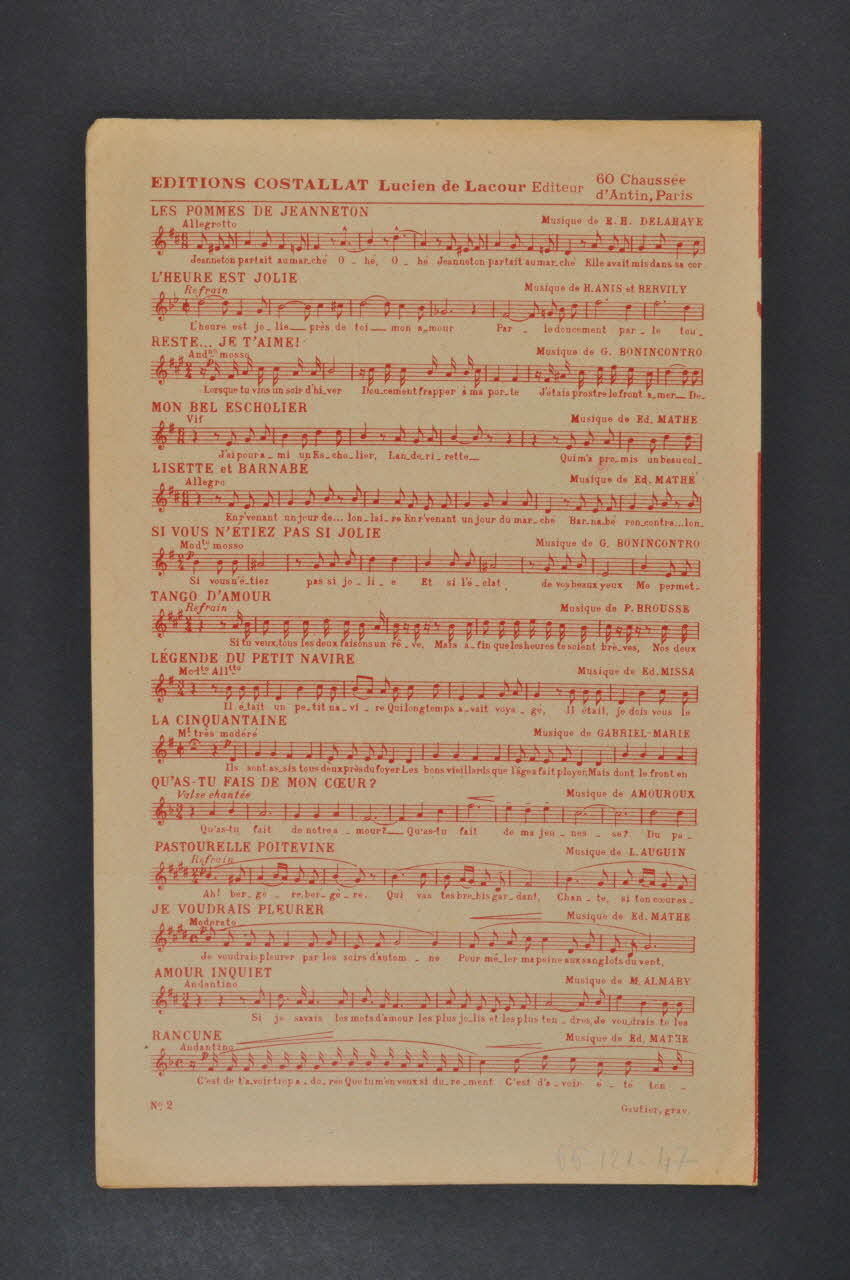 EDITIONS COSTALLAT Lucien de Lacour Editeur 60 Chaussée d'Antin, Paris
LES POMMES DE JEANNETON
Allegretto Musique de R.H. DELAHAYE
Jeanneton partait au mar_ché O _ hé, O _ hé Jeanneton partait au mar_ché Elle avait mis dans sa cor
L'HEURE EST JOLIE
Refrain Musique de H.ANIS et HERVILY
L'heure est jo_lie__ près de toi__ mon a_mour Par _ le doucement par_le tou_
RESTE... JE T'AIME!
Andno mosso Musique de G. BONINCONTRO
p
Lorsque tu vins un soir d'hi_ver Dou_cement frapper à ma por_te J'étais prostré le front a_mer__ De_
MON BEL ESCHOLIER
Vif Musique de Ed. MATHE
J'ai pour a_mi un Es_cho_lier, Lan_de_ri_rette__ Qui m'a pro_mis un beau col_
LISETTE et BARNABÉ
Allegro Musique de Ed. MATHÉ
En r'venant un jour de... lon_lai_re En r'venant un jour du mar_ché Bar_na_bé ren_contra... lon_
SI VOUS N'ETIEZ PAS SI JOLIE
Modto mosso Musique de G. BONINCONTRO
p
Si vous n'é_tiez pas si jo_li_e Et si l'é_clat de vos beaux yeux Me permet_
TANGO D'AMOUR
Refrain Musique de P. BROUSSE
Si tu veux, tous les deux faisons un rê_ve, Mais a_fin que les heures te soient brèves, Nos deux
LÉGENDE DU PETIT NAVIRE
Modto Alltto Musique de Ed. MISSA
Il é_tait un pe_tit na_vi_re Qui longtemps a_vait voya_gé, Il était, je dois vous le
LA CINQUANTAINE
Mt très modéré Musique de GABRIEL-MARIE
p
Ils sont as_sis tous deux près du foyer Les bons vieillards que l'âge a fait ployer, Mais dont le front en
QU'AS-TU FAIS DE MON CŒUR?
Valse chantée Musique de AMOUROUX
Qu'as-tu fait de notre a_mour?__ Qu'as-tu fait de ma jeu_nes_se? Du pa_
PASTOURELLE POITEVINE
Refrain Musique de L. AUGUIN
p
Ah! ber_gè_re, ber_gè_re. Qui vas tes bre_bis gar_dant, Chan_te, si ton cœur es_
JE VOUDRAIS PLEURER
Moderato Musique de Ed. MATHE
Je voudrais pleurer par les soirs d'autom_ne Pour mê_ler ma peine aux sanglots du vent,
AMOUR INQUIET
Andantino Musique de M. ALMARY
Si je savais les mots d'amour les plus jo_lis et les plus ten_dres, Je vou_drais te les
RANCUNE
Andantino Musique de Ed. MATHE
p
C'est de t'a_voir trop a_do_rée Que tu m'en veux si du_re_ment C'est d'a_voir é_té ton_
No 2 Gautier, grav.
66 121-47